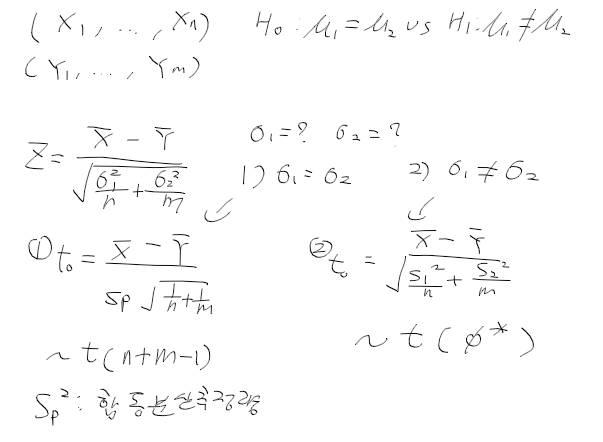 (X₁, ..., Xn) H₀ : μ₁ = μ₂ vs H₁ : μ₁ ≠ μ₂
(Y₁, ..., Ym)
Z = (X̄ - Ȳ) / √(σ₁²/n + σ₂²/m)
σ₁ = ? σ₂ = ?
1) σ₁ = σ₂ 2) σ₁ ≠ σ₂
① t₀ = (X̄ - Ȳ) / (Sp √(1/n + 1/m))
~ t(n+m-1)
② t₀ = (X̄ - Ȳ) / √(S₁²/n + S₂²/m)
~ t(φ*)
Sp² : 합동분산추정량